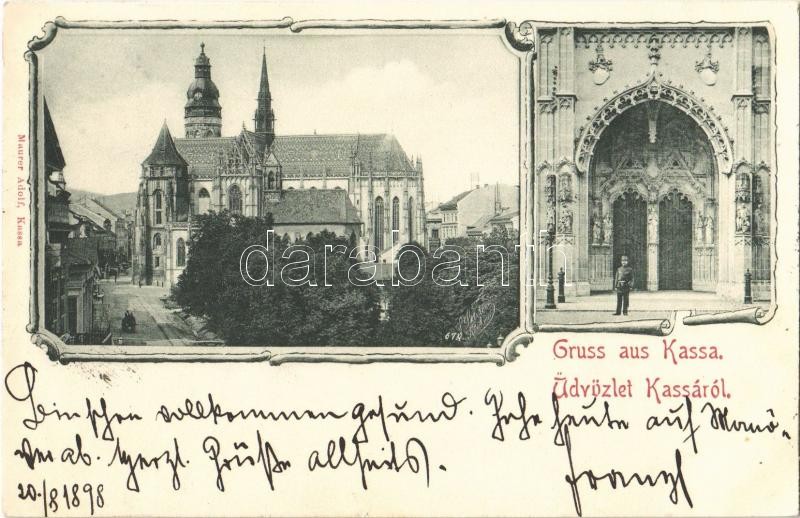 Maurer Adolf, Kassa
darabanth
674
Gruss aus Kassa.
Üdvözlet Kassáról.
Bin schon vollkommen gesund. Gehe heute auf Manö-
ver ab. Herzl. Grüße allseits.
Franzl
20./8 1898